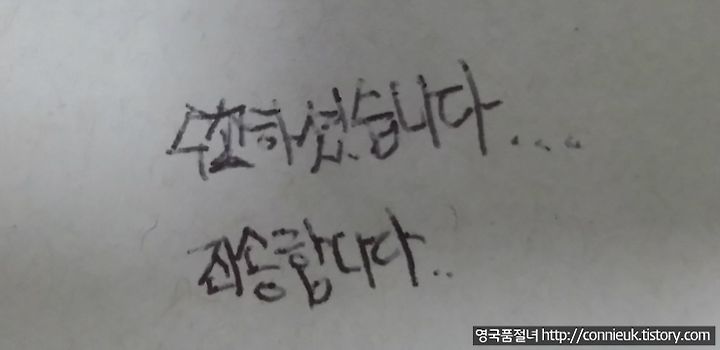 수고하셨습니다...
죄송합니다..
영국품절녀 http://connieuk.tistory.com